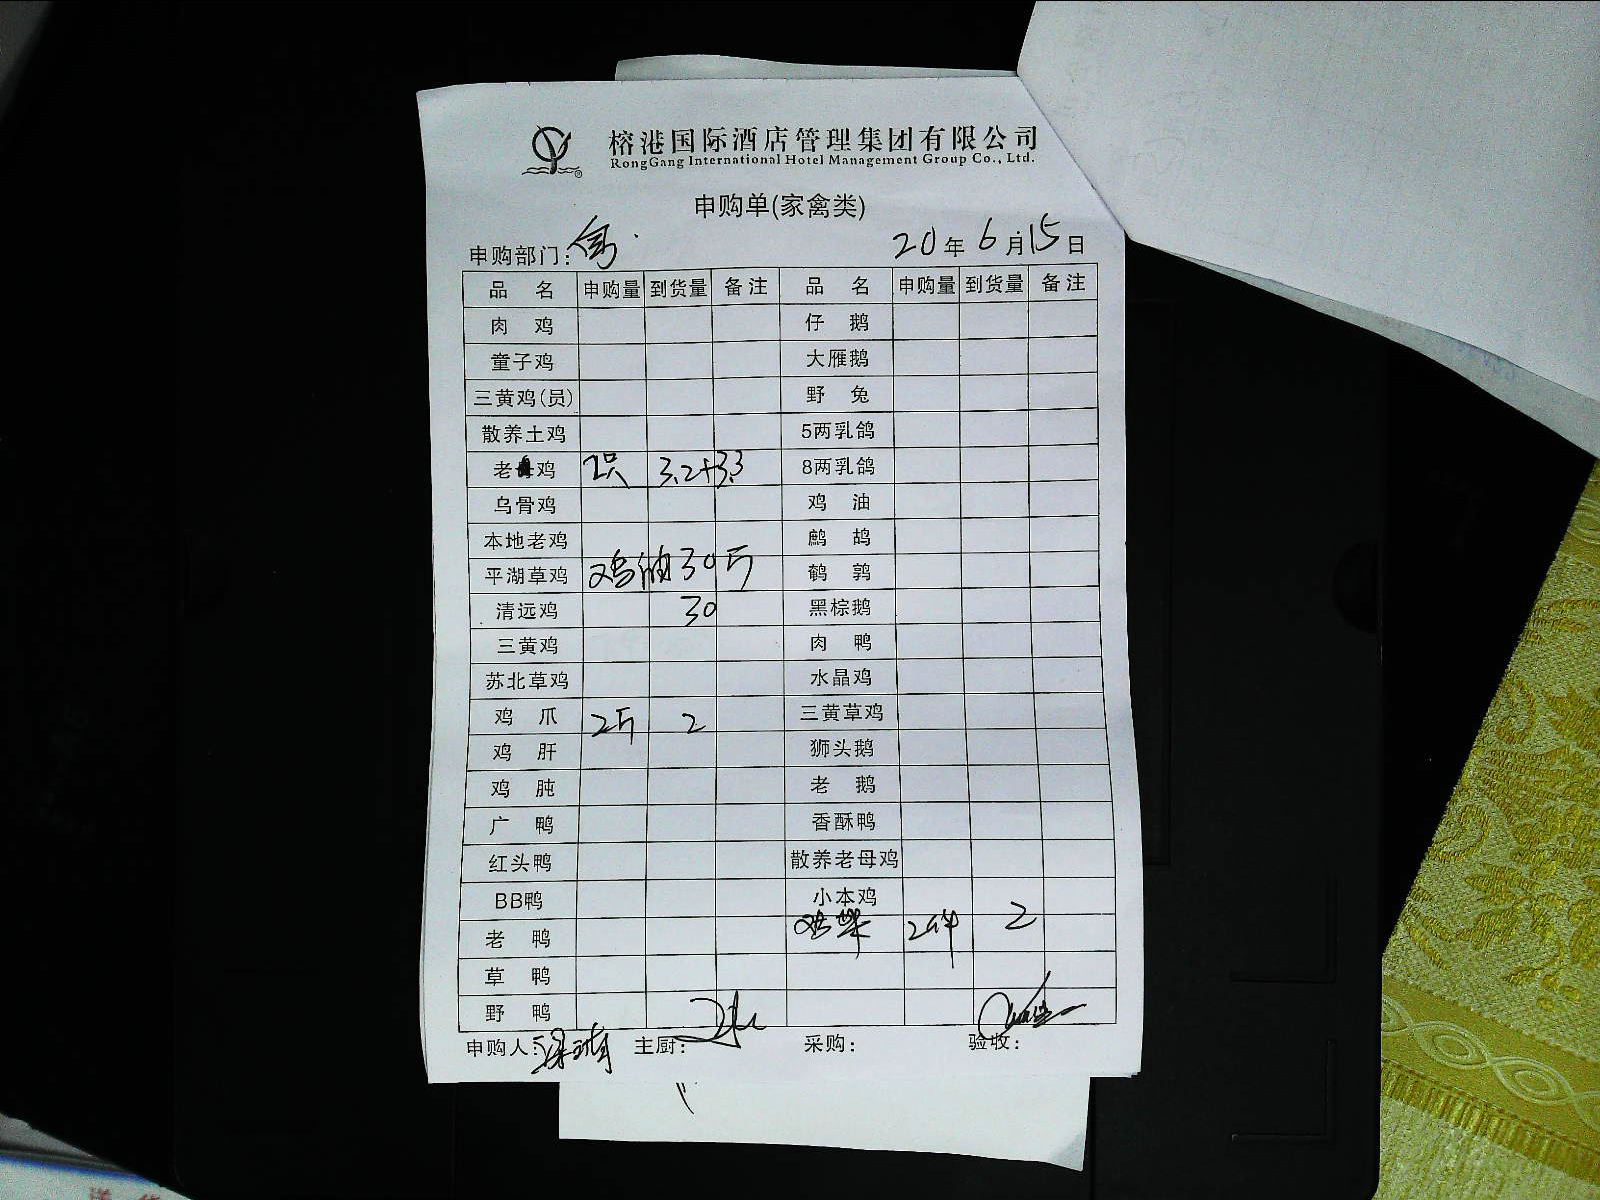 榕港国际酒店管理集团有限公司
RongGang International Hotel Management Group Co., Ltd.
申购单(家禽类)
申购部门: 20年6月15日
品名 申购量 到货量 备注 品名 申购量 到货量 备注
肉鸡 仔鹅
童子鸡 大雁鹅
三黄鸡(员) 野兔
散养土鸡 5两乳鸽
老母鸡 2只 3.2+3.3 8两乳鸽
乌骨鸡 鸡油
本地老鸡 鹧鸪
平湖草鸡 鸡油30斤 鹌鹑
清远鸡 30 黑棕鹅
三黄鸡 肉鸭
苏北草鸡 水晶鸡
鸡爪 2斤 2 三黄草鸡
鸡肝 狮头鹅
鸡肫 老鹅
广鸭 香酥鸭
红头鸭 散养老母鸡
BB鸭 小本鸡
老鸭 鸡架 2件 2
草鸭
野鸭
申购人: 主厨: 采购: 验收: